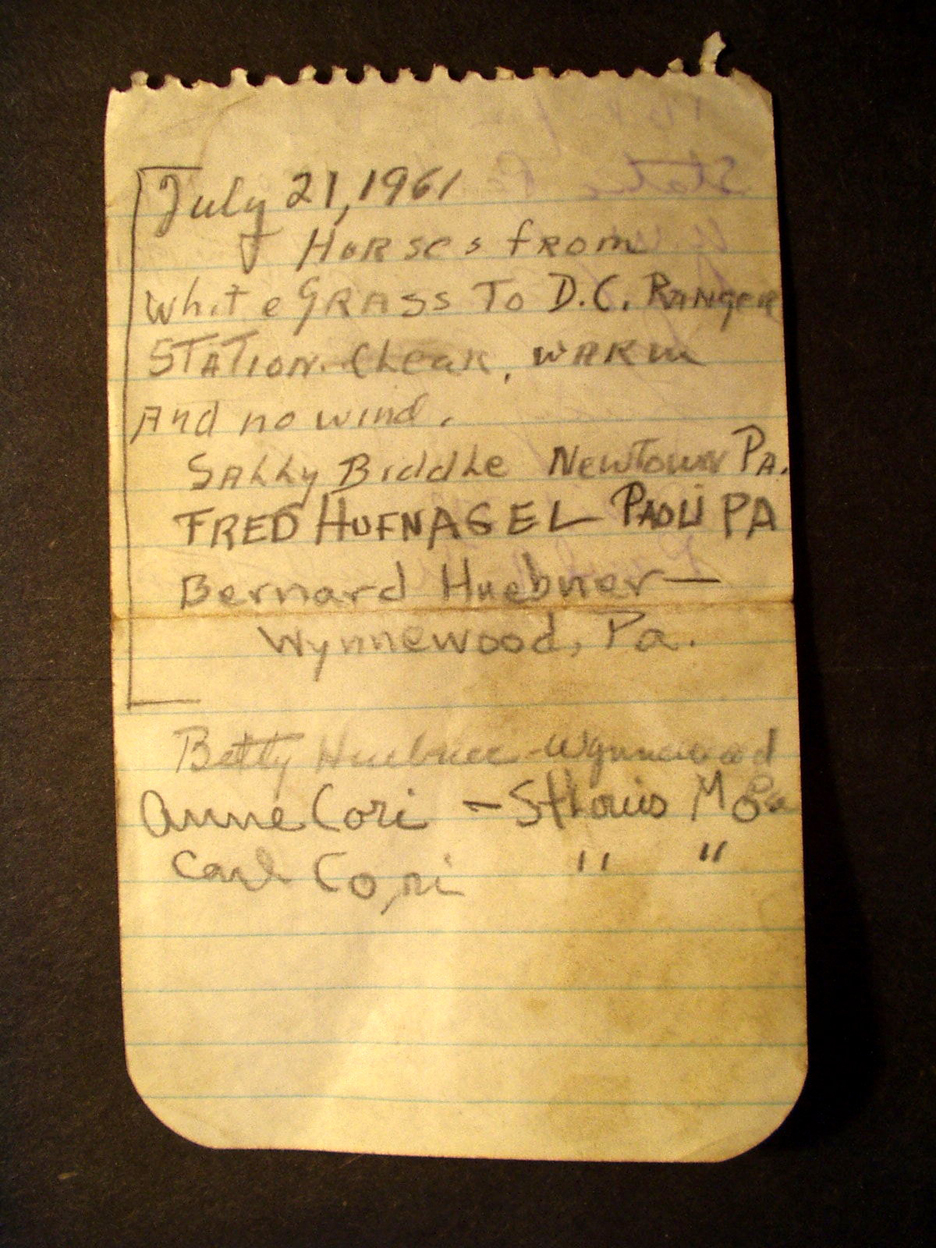 July 21, 1961
Horses from
White Grass To D.C. Ranger
Station. Clear, warm
And no wind.
Sally Biddle Newtown Pa.
FRED HUFNAGEL PAOLI PA
Bernard Huebner —
Wynnewood, Pa.
Betty Huebner - Wynnewood
Pa
Anne Cori - St Louis Mo
Carl Cori " "
State